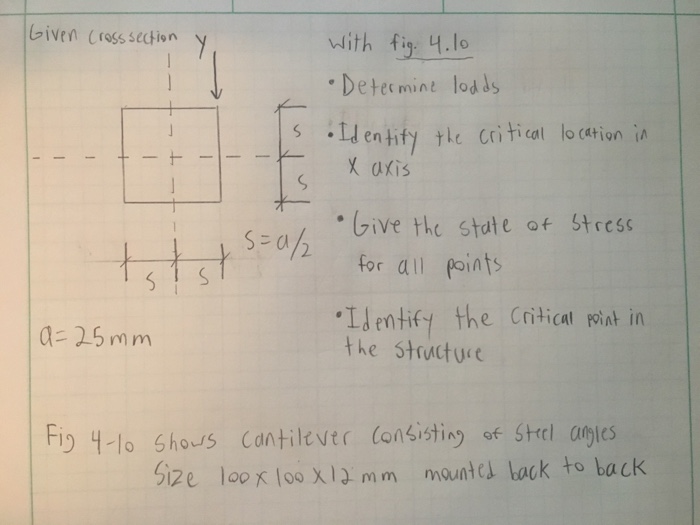 Given cross section
Y
With fig. 4.10
• Determine loads
• Identify the critical location in
X axis
• Give the state of stress
for all points
• Identify the critical point in
the structure
S
S
S = a/2
S S
a = 25mm
Fig 4-10 shows cantilever consisting of steel angles
Size 100 x 100 x 12 mm mounted back to back